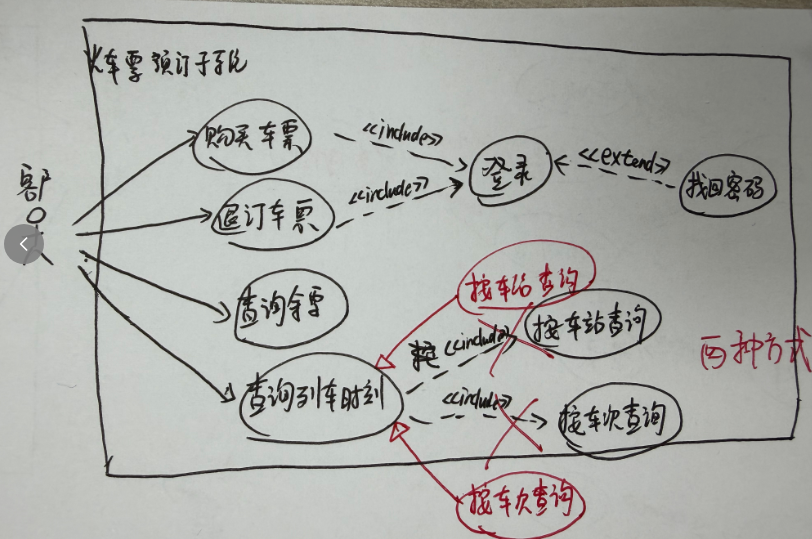 火车票预订子系统
客户
购买车票
<<include>>
登录
<<extend>>
找回密码
退订车票
<<include>>
查询余票
按车站查询
<<include>>
按车站查询
两种方式
查询列车时刻
<<include>>
按车次查询
按车次查询